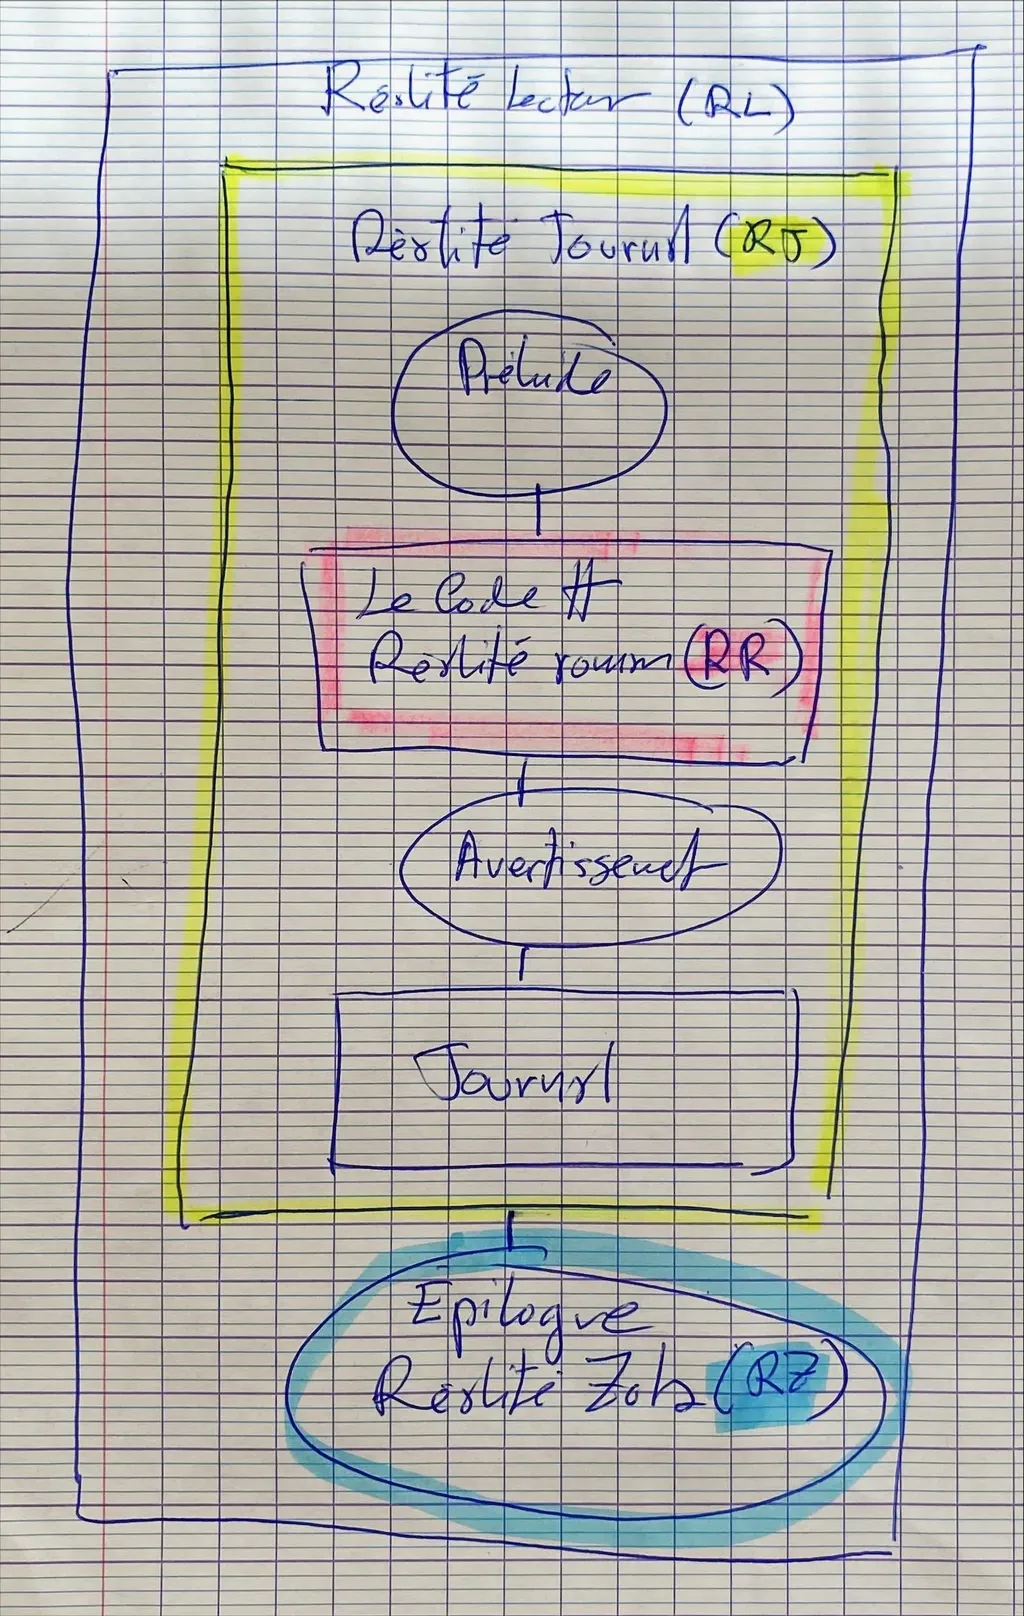 Réalité Lecteur (RL)
Réalité Journal (RJ)
Prélude
Le Code #
Réalité roman (RR)
Avertissement
Journal
Épilogue
Réalité (RZ)